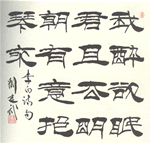 我醉欲眠
君且去明
朝有意抱
琴來
李白詩句